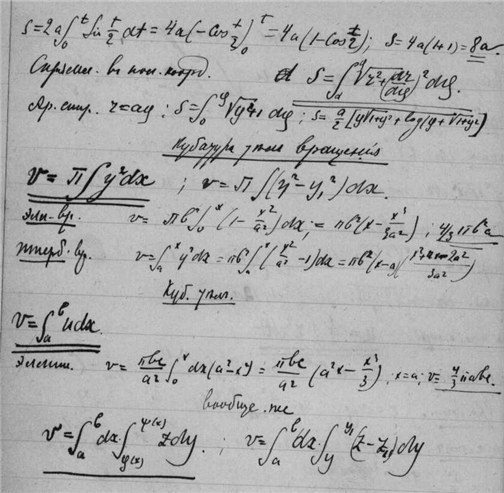 s = 2a ∫₀ᵗ Sin t/2 dt = 4a (-Cos t/2)₀ᵗ = 4a (1 - Cos t/2); s = 4a(1+1) = 8a.
Спрямл. въ пол. коорд. s = ∫ √(r² + (dr/dφ)²) dφ.
Ар. спир. r = aφ; s = ∫₀^φ √(φ²+1) dφ; s = a/2 [φ√(1+φ²) + log(φ + √(1+φ²)]
Кубатура тел вращения
v = π∫y²dx; v = π∫(y² - y₁²)dx.
элл. вр. v = πb² ∫₀ˣ (1 - x²/a²) dx; = πb² (x - x³/3a²); 4/3 πb²a
v = ∫ₐˣ y²dx = πb² ∫ (x²/a² - 1) dx = πb² (x-a)
Куб. тел.
v = ∫ₐᵇ u dx.
Эллип. v = πbc/a² ∫₀ˣ dx (a² - x²) = πbc/a² (a²x - x³/3); x = a; v = 4/3 πabc.
вообще же
v = ∫ₐᵇ dx ∫_φ(x)^ψ(x) z dy; v = ∫ₐᵇ dx ∫_y^y₁ (z - z₁) dy